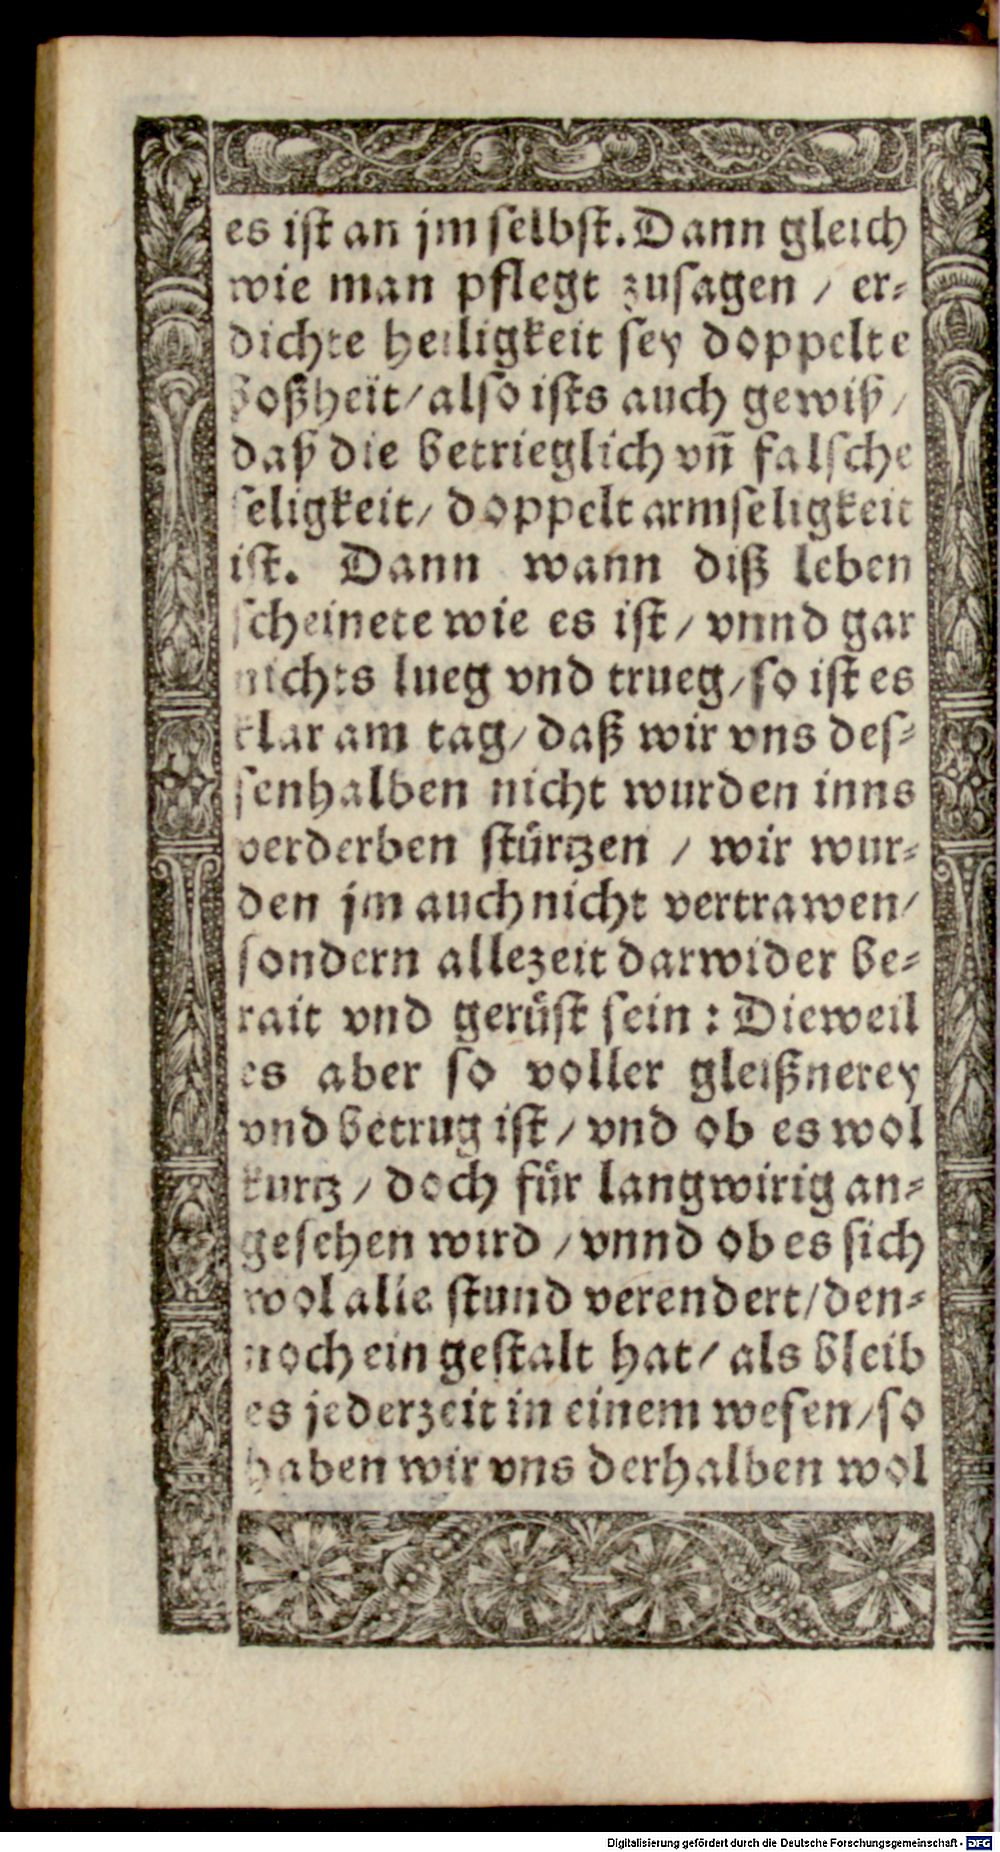 es ist an jm selbst. Dann gleich
wie man pflegt zusagen / er⸗
dichte heiligkeit sey doppelte
boßheit / also ists auch gewiß /
daß die betrieglich vñ falsche
seligkeit / doppelt armseligkeit
ist. Dann wann diß leben
scheinete wie es ist / vnnd gar
nichts lueg vnd trueg / so ist es
klar am tag / daß wir vns des⸗
senhalben nicht wurden inns
verderben stuͤrtzen / wir wur⸗
den jm auch nicht vertrawen /
sondern allezeit darwider be⸗
rait vnd geruͤst sein : Dieweil
es aber so voller gleißnerey
vnd betrug ist / vnd ob es wol
kurtz / doch fuͤr langwirig an⸗
gesehen wird / vnnd ob es sich
wol alle stund verendert / den⸗
noch ein gestalt hat / als bleib
es jederzeit in einem wesen / so
haben wir vns derhalben wol
Digitalisierung gefördert durch die Deutsche Forschungsgemeinschaft - DFG